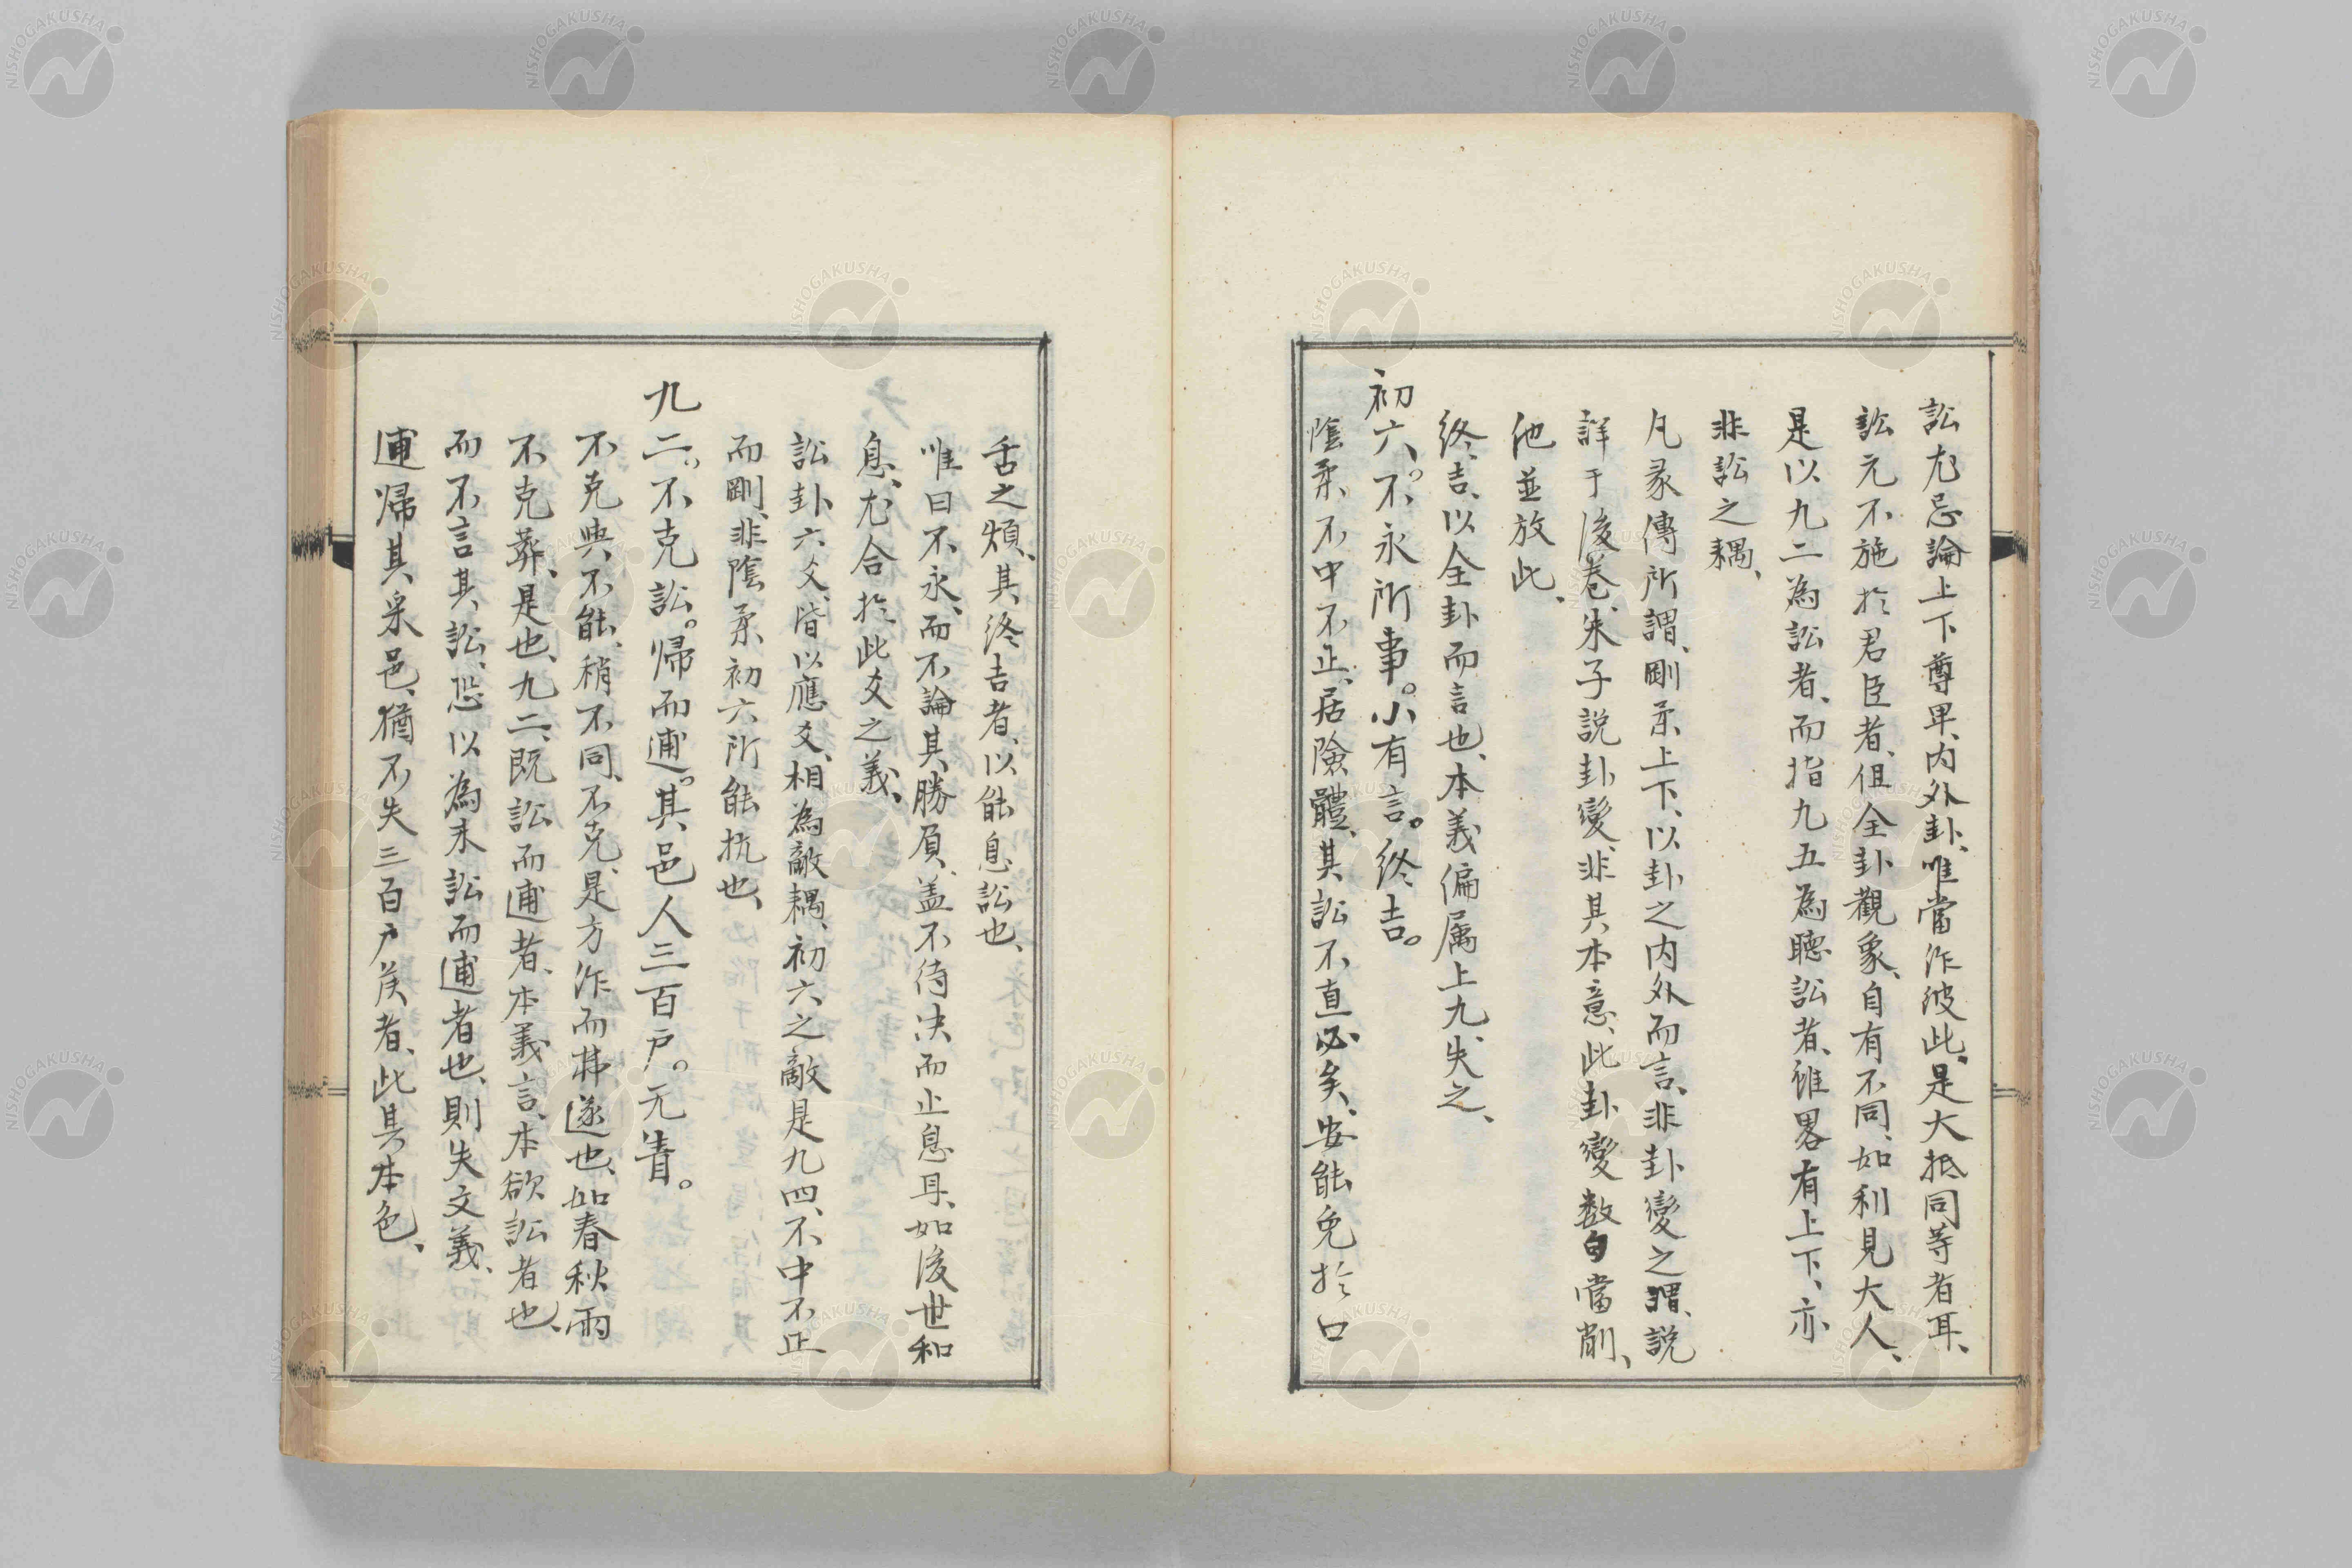 訟尤忌論上下尊卑、内外卦、唯當作彼此、是大抵同等者耳、
訟元不施於君臣者、但全卦觀象、自有不同、如利見大人、
是以九二為訟者、而指九五為聽訟者、雖畧有上下、亦
非訟之耦、
凡彖傳所謂、剛柔上下、以卦之内外而言、非卦變之謂、説
詳于後卷、朱子説卦變、非其本意、此卦卦變数句當削、
他並放此、
終吉、以全卦而言也、本義偏属上九、失之、
初六。不永所事。小有言。終吉。
陰柔不中不正、居險體、其訟不直必矣、安能免於口
舌之煩、其終吉者、以能息訟也、
唯曰不永、而不論其勝負、盖不待决而止息耳、如後世和
息、尤合於此爻之義、
訟卦六爻、皆以應爻、相為敵耦、初六之敵是九四、不中不正
而剛、非陰柔初六所能抗也、
九二。不克訟。歸而逋。其邑人三百戸。无眚。
不克與不能、稍不同、不克、是方作而弗遂也、如春秋雨
不克葬、是也、九二、既訟而逋者、本義言、本欲訟者也、
而不言其訟、恐以為未訟而逋者也、則失文義、
逋歸其采邑、猶不失三百戸矦者、此其本色、
NISHOGAKUSHA